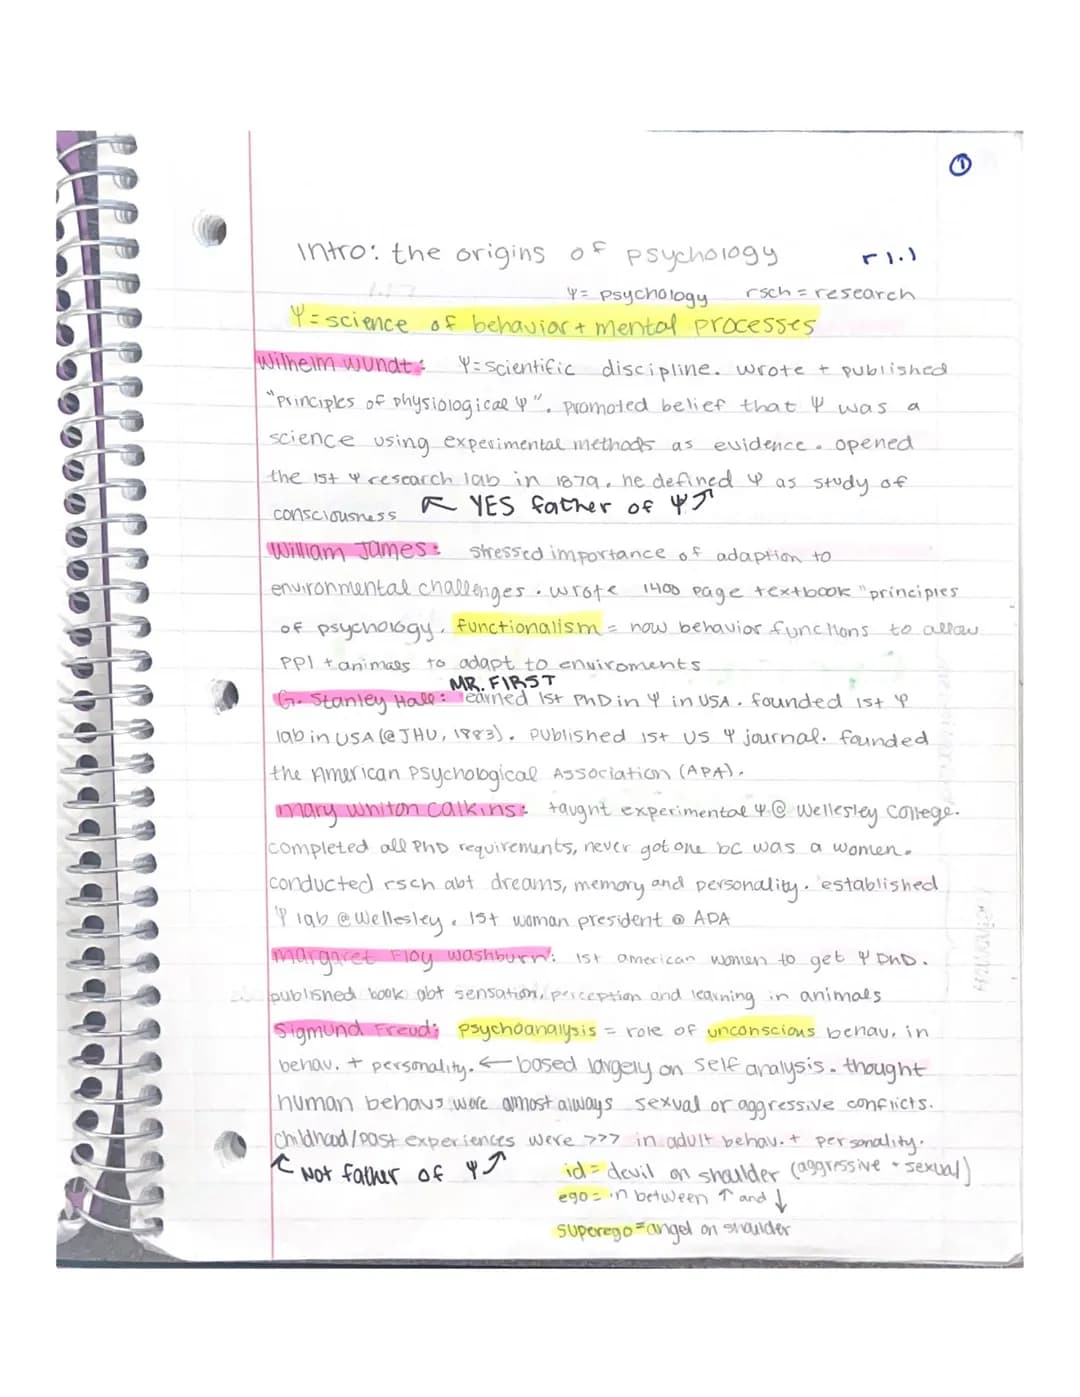 ①
Intro: the origins of psychology r1.1
Ψ = psychology rsch = research
Ψ = science of behavior + mental processes
Wilhelm Wundt: Ψ = scientific discipline. wrote + published
"principles of physiological Ψ". promoted belief that Ψ was a
science using experimental methods as evidence. opened
the 1st Ψ research lab in 1879. he defined Ψ as study of
consciousness ↖ YES father of Ψ ↗
William James: stressed importance of adaption to
environmental challenges. wrote 1400 page textbook "principles
of psychology. functionalism = how behavior functions to allow
ppl + animals to adapt to enviroments
MR. FIRST
G. Stanley Hall: earned 1st PhD in Ψ in USA. founded 1st Ψ
lab in USA (@ JHU, 1883). published 1st US Ψ journal. founded
the American Psychological Association (APA).
Mary Whiton Calkins: taught experimental Ψ @ Wellesley College.
completed all PhD requirements, never got one bc was a women.
conducted rsch abt dreams, memory and personality. established
Ψ lab @ Wellesley. 1st woman president @ APA
Margaret Floy Washburn: 1st american women to get Ψ PhD.
published book abt sensation, perception and learning in animals
Sigmund Freud: psychoanalysis = role of unconscious behav. in
behav. + personality. ← based largely on self analysis. thought
human behavs were almost always sexual or aggressive conflicts.
Childhood/past experiences were >>> in adult behav. + personality.
↖ Not father of Ψ ↗ id = devil on shoulder (aggressive + sexual)
ego = in between ↑ and ↓
superego = angel on shoulder